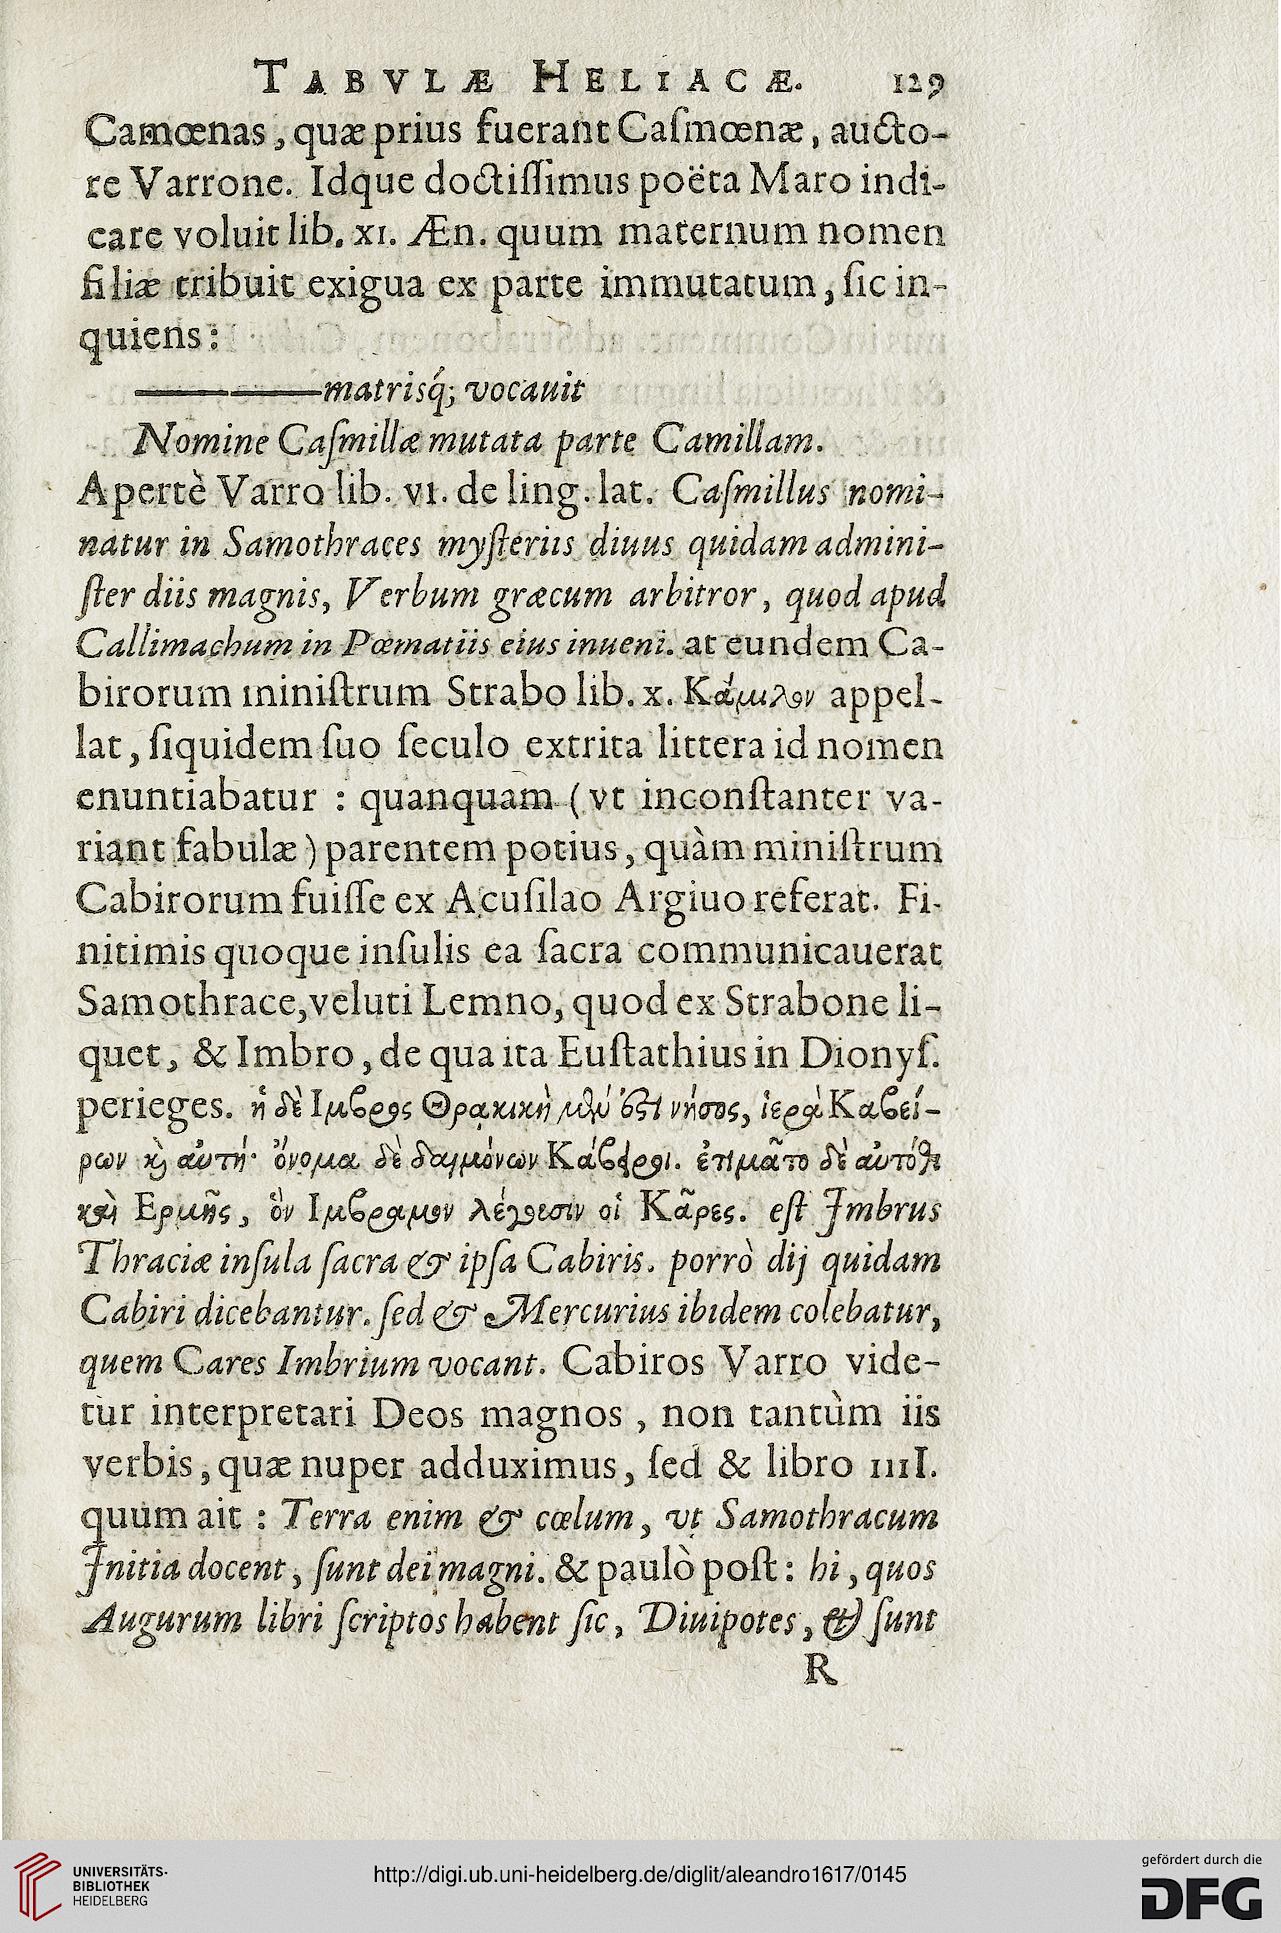 TABVLÆ HELIACÆ. 129
Camœnas, quæ prius fuerant Caſmœnæ, aucto-
re Varrone. Idque doctiſſimus poëta Maro indi-
care voluit lib. xi. Æn. quum maternum nomen
filiæ tribuit exigua ex parte immutatum, ſic in-
quiens:
—— ——matrisq́; vocauit
Nomine Caſmillæ mutata parte Camillam.
Apertè Varro lib. vi. de ling. lat. Caſmillus nomi-
natur in Samothraces myſteriis diuus quidam admini-
ſter diis magnis, Verbum græcum arbitror, quod apud
Callimachum in Pœmatiis eius inueni. at eundem Ca-
birorum miniſtrum Strabo lib. x. Κάμιλον appel-
lat, ſiquidem ſuo ſeculo extrita littera id nomen
enuntiabatur : quanquam (vt inconſtanter va-
riant fabulæ) parentem potius, quàm miniſtrum
Cabirorum fuiſſe ex Acuſilao Argiuo referat. Fi-
nitimis quoque inſulis ea ſacra communicauerat
Samothrace, veluti Lemno, quod ex Strabone li-
quet, & Imbro, de qua ita Euſtathius in Dionyſ.
perieges. ἡ δὲ Ιμβρος Θρακικὴ μὲν ὅστι νήσος, ἱερὰ Καβεί-
ρων κὶ αὐτή· ὄνομα δὲ δαιμόνων Κάβειροι. ἐτιμᾶτο δὲ αὐτόθι
καὶ Ερμῆς, ὃν Ιμβραμον λέγουσιν οἱ Κᾶρες. eſt Imbrus
Thraciæ inſula ſacra & ipſa Cabiris. porrò dij quidam
Cabiri dicebantur. ſed & Mercurius ibidem colebatur,
quem Cares Imbrium vocant. Cabiros Varro vide-
tur interpretari Deos magnos, non tantùm iis
verbis, quæ nuper adduximus, ſed & libro iiiI.
quum ait : Terra enim & cœlum, vt Samothracum
Initia docent, ſunt dei magni. & paulò poſt : hi, quos
Augurum libri ſcriptos habent ſic, Diuipotes, & ſunt
R
UNIVERSITÄTS-
BIBLIOTHEK
HEIDELBERG
http://digi.ub.uni-heidelberg.de/diglit/aleandro1617/0145
gefördert durch die
DFG